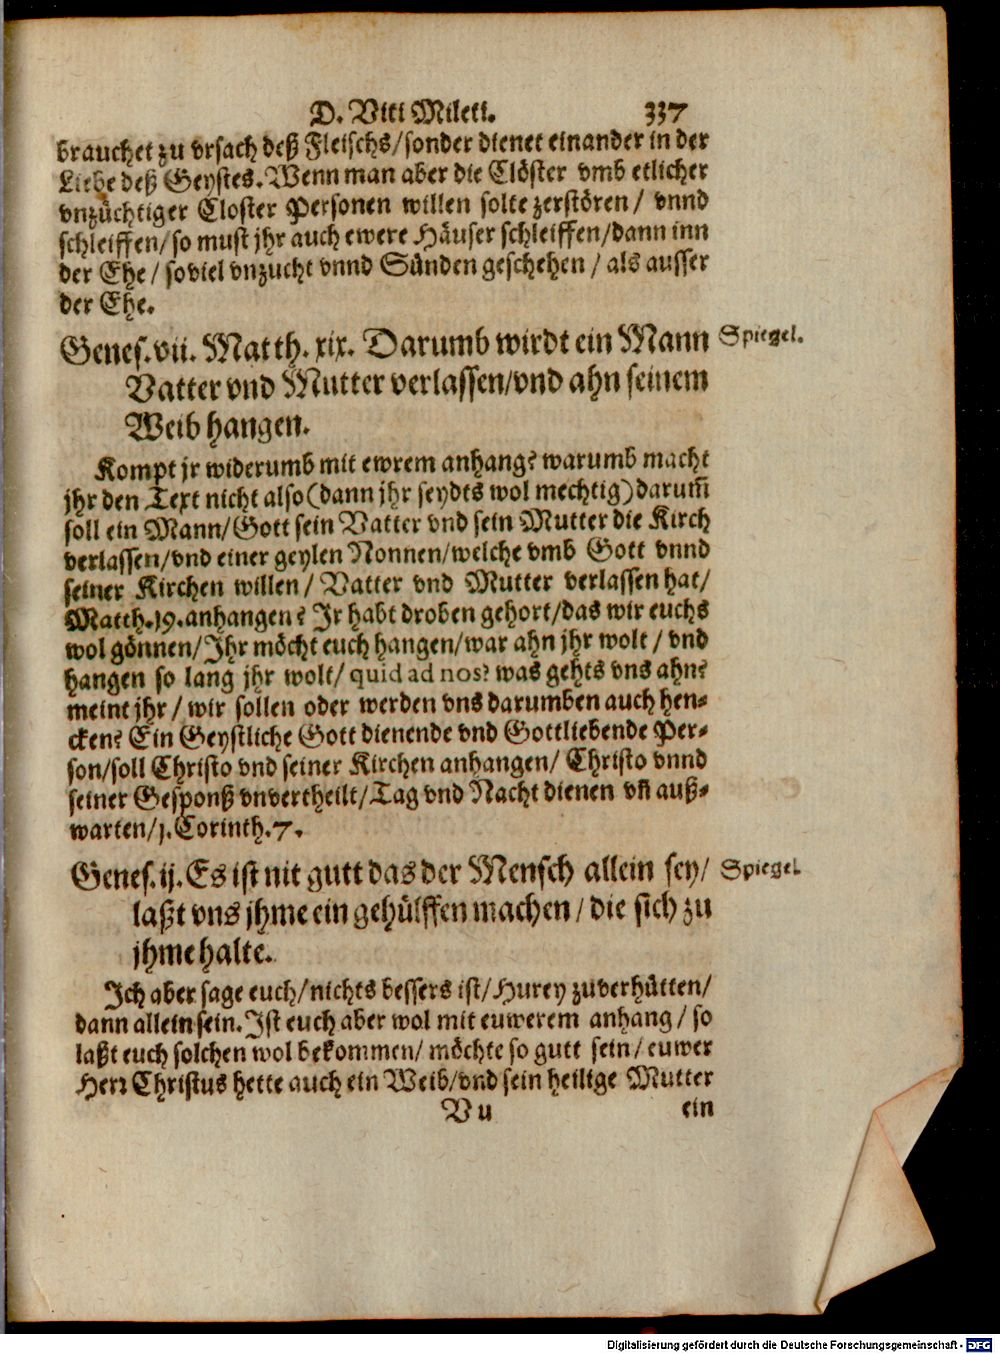 D. Viti Mileti. 337
brauchet zu vrsach deß Fleischs/sonder dienet einander in der
Liebe deß Geystes. Wenn man aber die Clöster vmb etlicher
vnzüchtiger Closter Personen willen solte zerstören/ vnnd
schleiffen/so must jhr auch ewere Häuser schleiffen/dann inn
der Ehe/ so viel vnzucht vnnd Sünden geschehen/ als ausser
der Ehe.
Genes. vii. Matth. xix. Darumb wirdt ein Mann Spiegel.
Vatter vnd Mutter verlassen/vnd ahn seinem
Weib hangen.
Kompt jr widerumb mit ewrem anhang? warumb macht
jhr den Text nicht also (dann jhr seydts wol mechtig) darum̄
soll ein Mann/Gott sein Vatter vnd sein Mutter die Kirch
verlassen/vnd einer geylen Nonnen/welche vmb Gott vnnd
seiner Kirchen willen/ Vatter vnd Mutter verlassen hat/
Matth. 19. anhangen? Jr habt droben gehort/das wir euchs
wol gönnen/Jhr möcht euch hangen/war ahn jhr wolt/ vnd
hangen so lang jhr wolt/ quid ad nos? was gehts vns ahn?
meint jhr/ wir sollen oder werden vns darumben auch hen-
cken? Ein Geystliche Gott dienende vnd Gottliebende Per-
son/soll Christo vnd seiner Kirchen anhangen/ Christo vnnd
seiner Gesponß vnvertheilt/Tag vnd Nacht dienen vn̄ auß-
warten/1. Corinth. 7.
Genes. ij. Es ist nit gutt das der Mensch allein sey/ Spiegel.
laßt vns jhme ein gehülffen machen/ die sich zu
jhme halte.
Jch aber sage euch/nichts bessers ist/Hurey zuverhütten/
dann allein sein. Jst euch aber wol mit euwerem anhang/ so
laßt euch solchen wol bekommen/ möchte so gutt sein/ euwer
Herr Christus hette auch ein Weib/vnd sein heilige Mutter
Vu ein
Digitalisierung gefördert durch die Deutsche Forschungsgemeinschaft - DFG